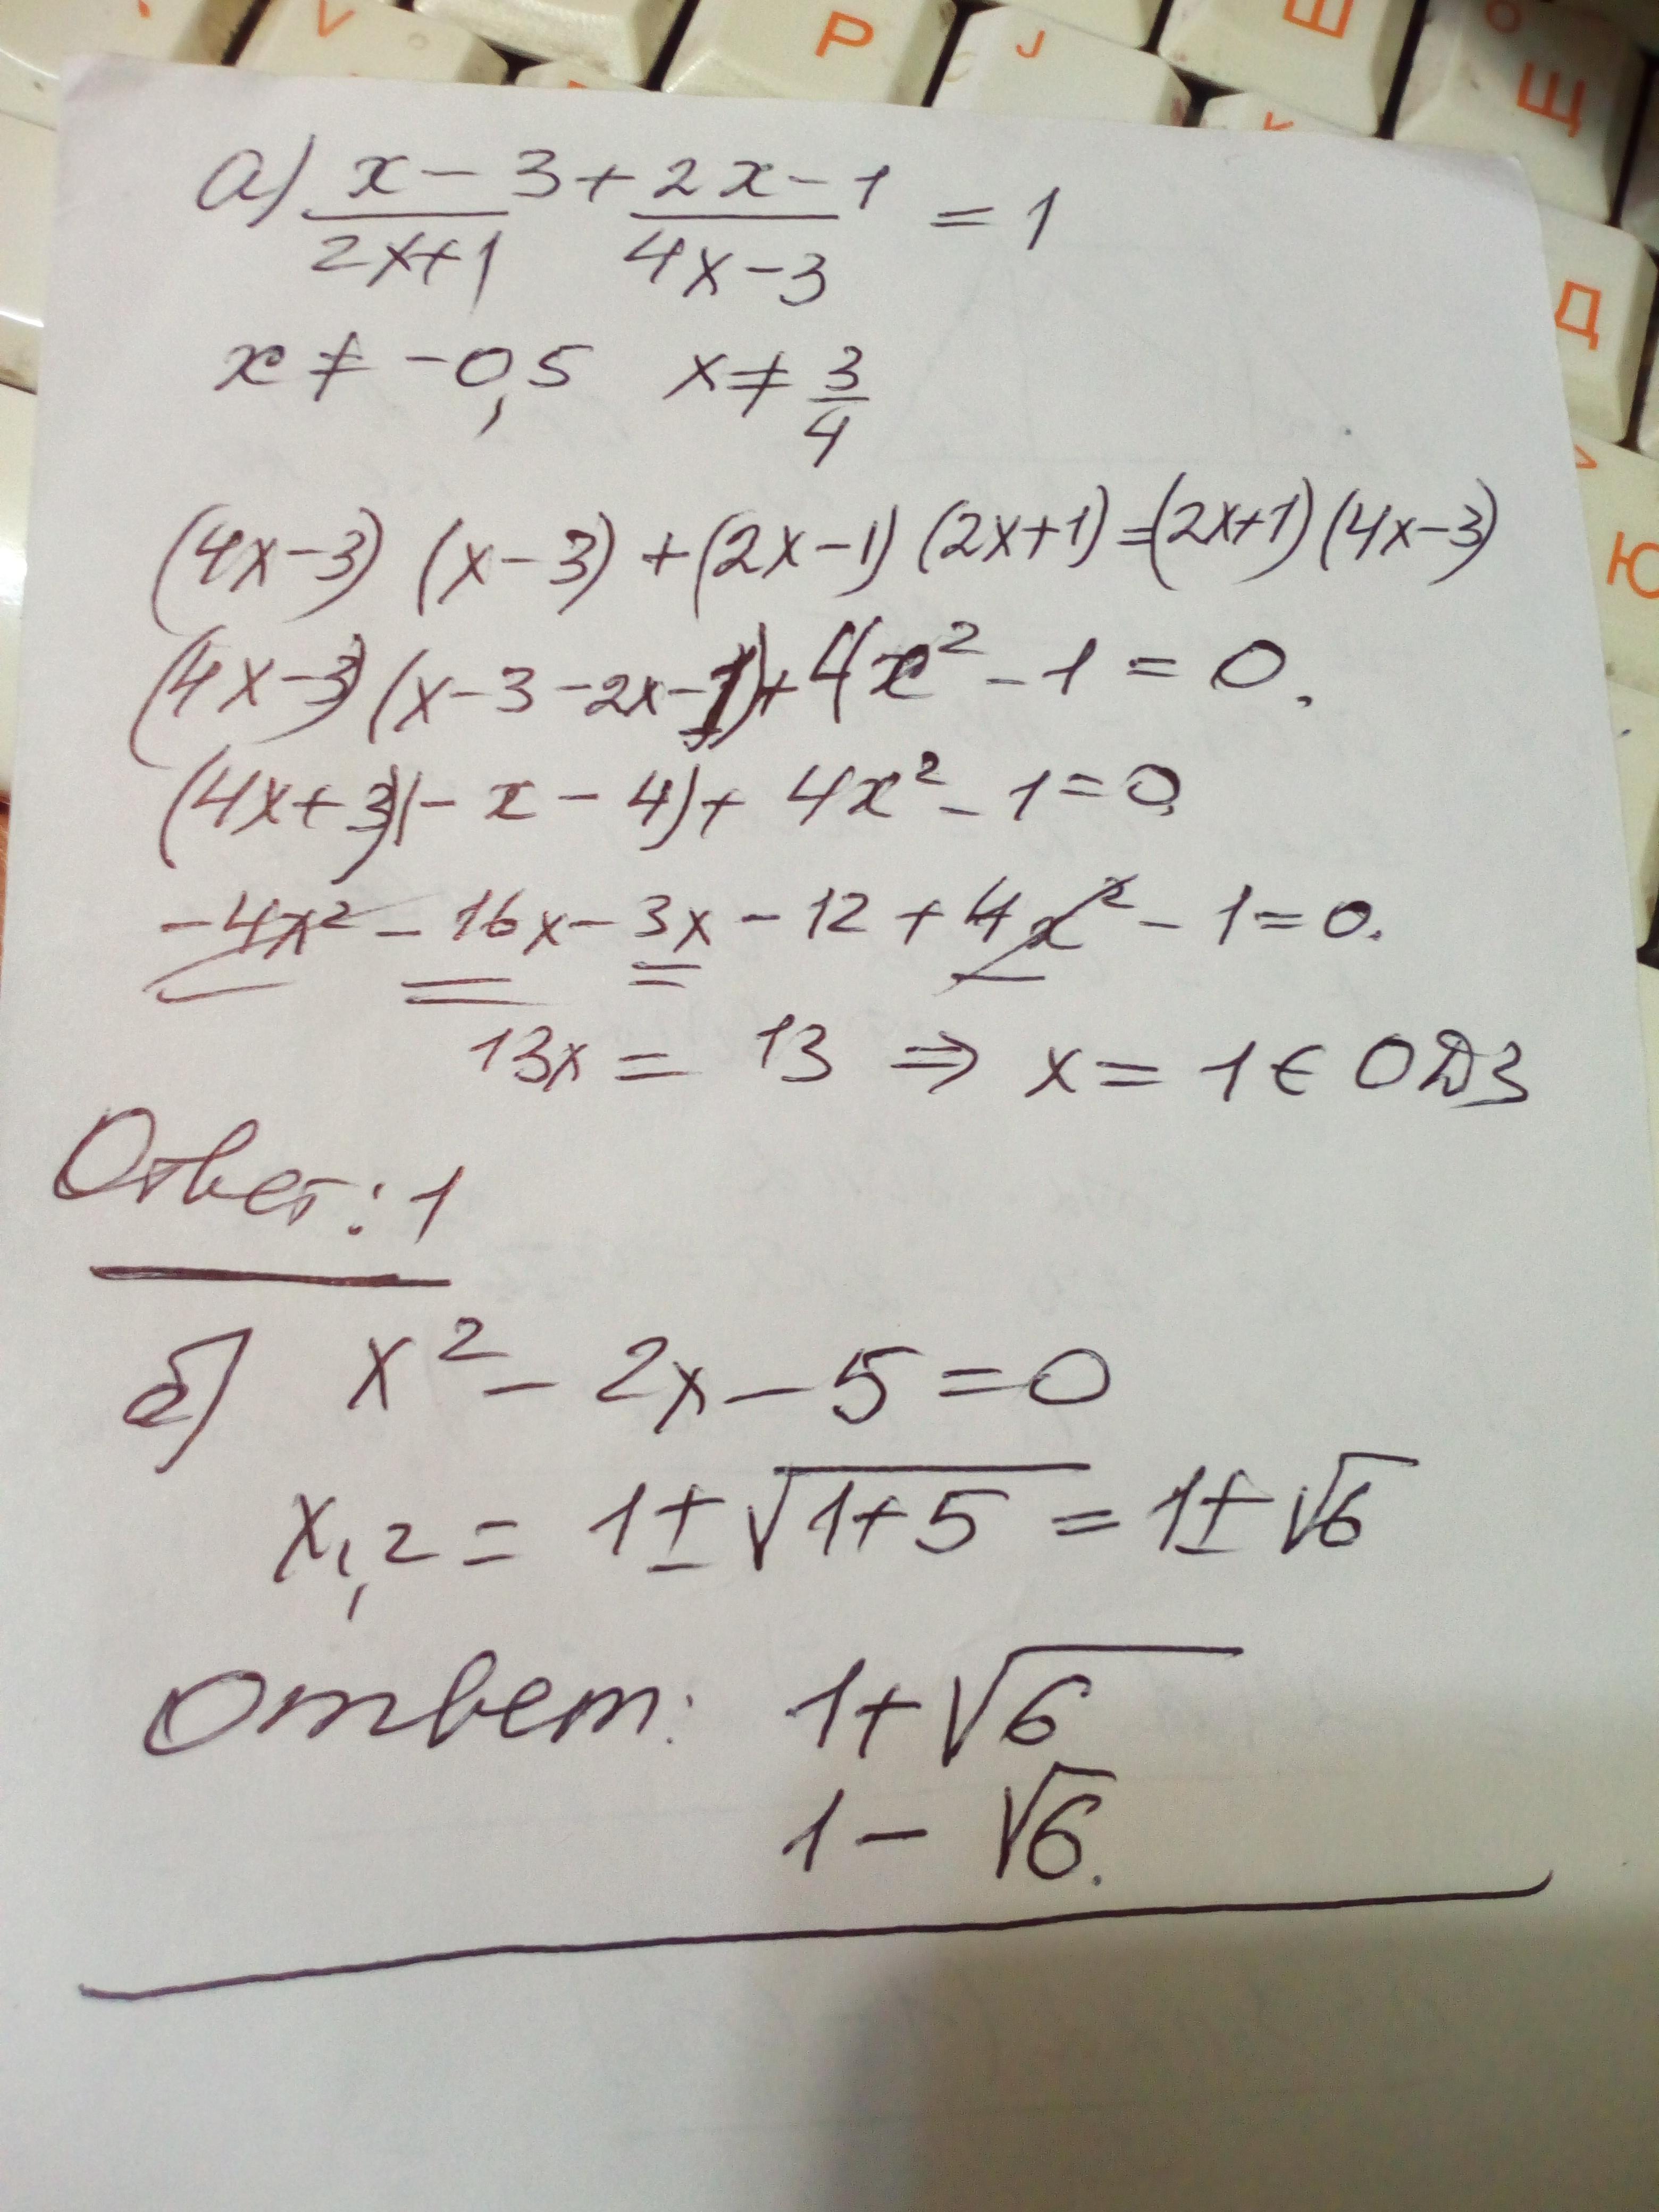 V P J Ш O Щ
Д
Ю
а) (x-3)/(2x+1) + (2x-1)/(4x-3) = 1
x ≠ -0,5 x ≠ 3/4
(4x-3) (x-3) + (2x-1) (2x+1) = (2x+1) (4x-3)
(4x-3) (x-3-2x-1) + 4x² - 1 = 0.
(4x+3) (-x-4) + 4x² - 1 = 0
-4x² - 16x - 3x - 12 + 4x² - 1 = 0.
13x = 13 ⇒ x = 1 ∈ ОДЗ
Ответ: 1
б) x² - 2x - 5 = 0
x₁,₂ = 1 ± √(1+5) = 1 ± √6
Ответ: 1 + √6
1 - √6.